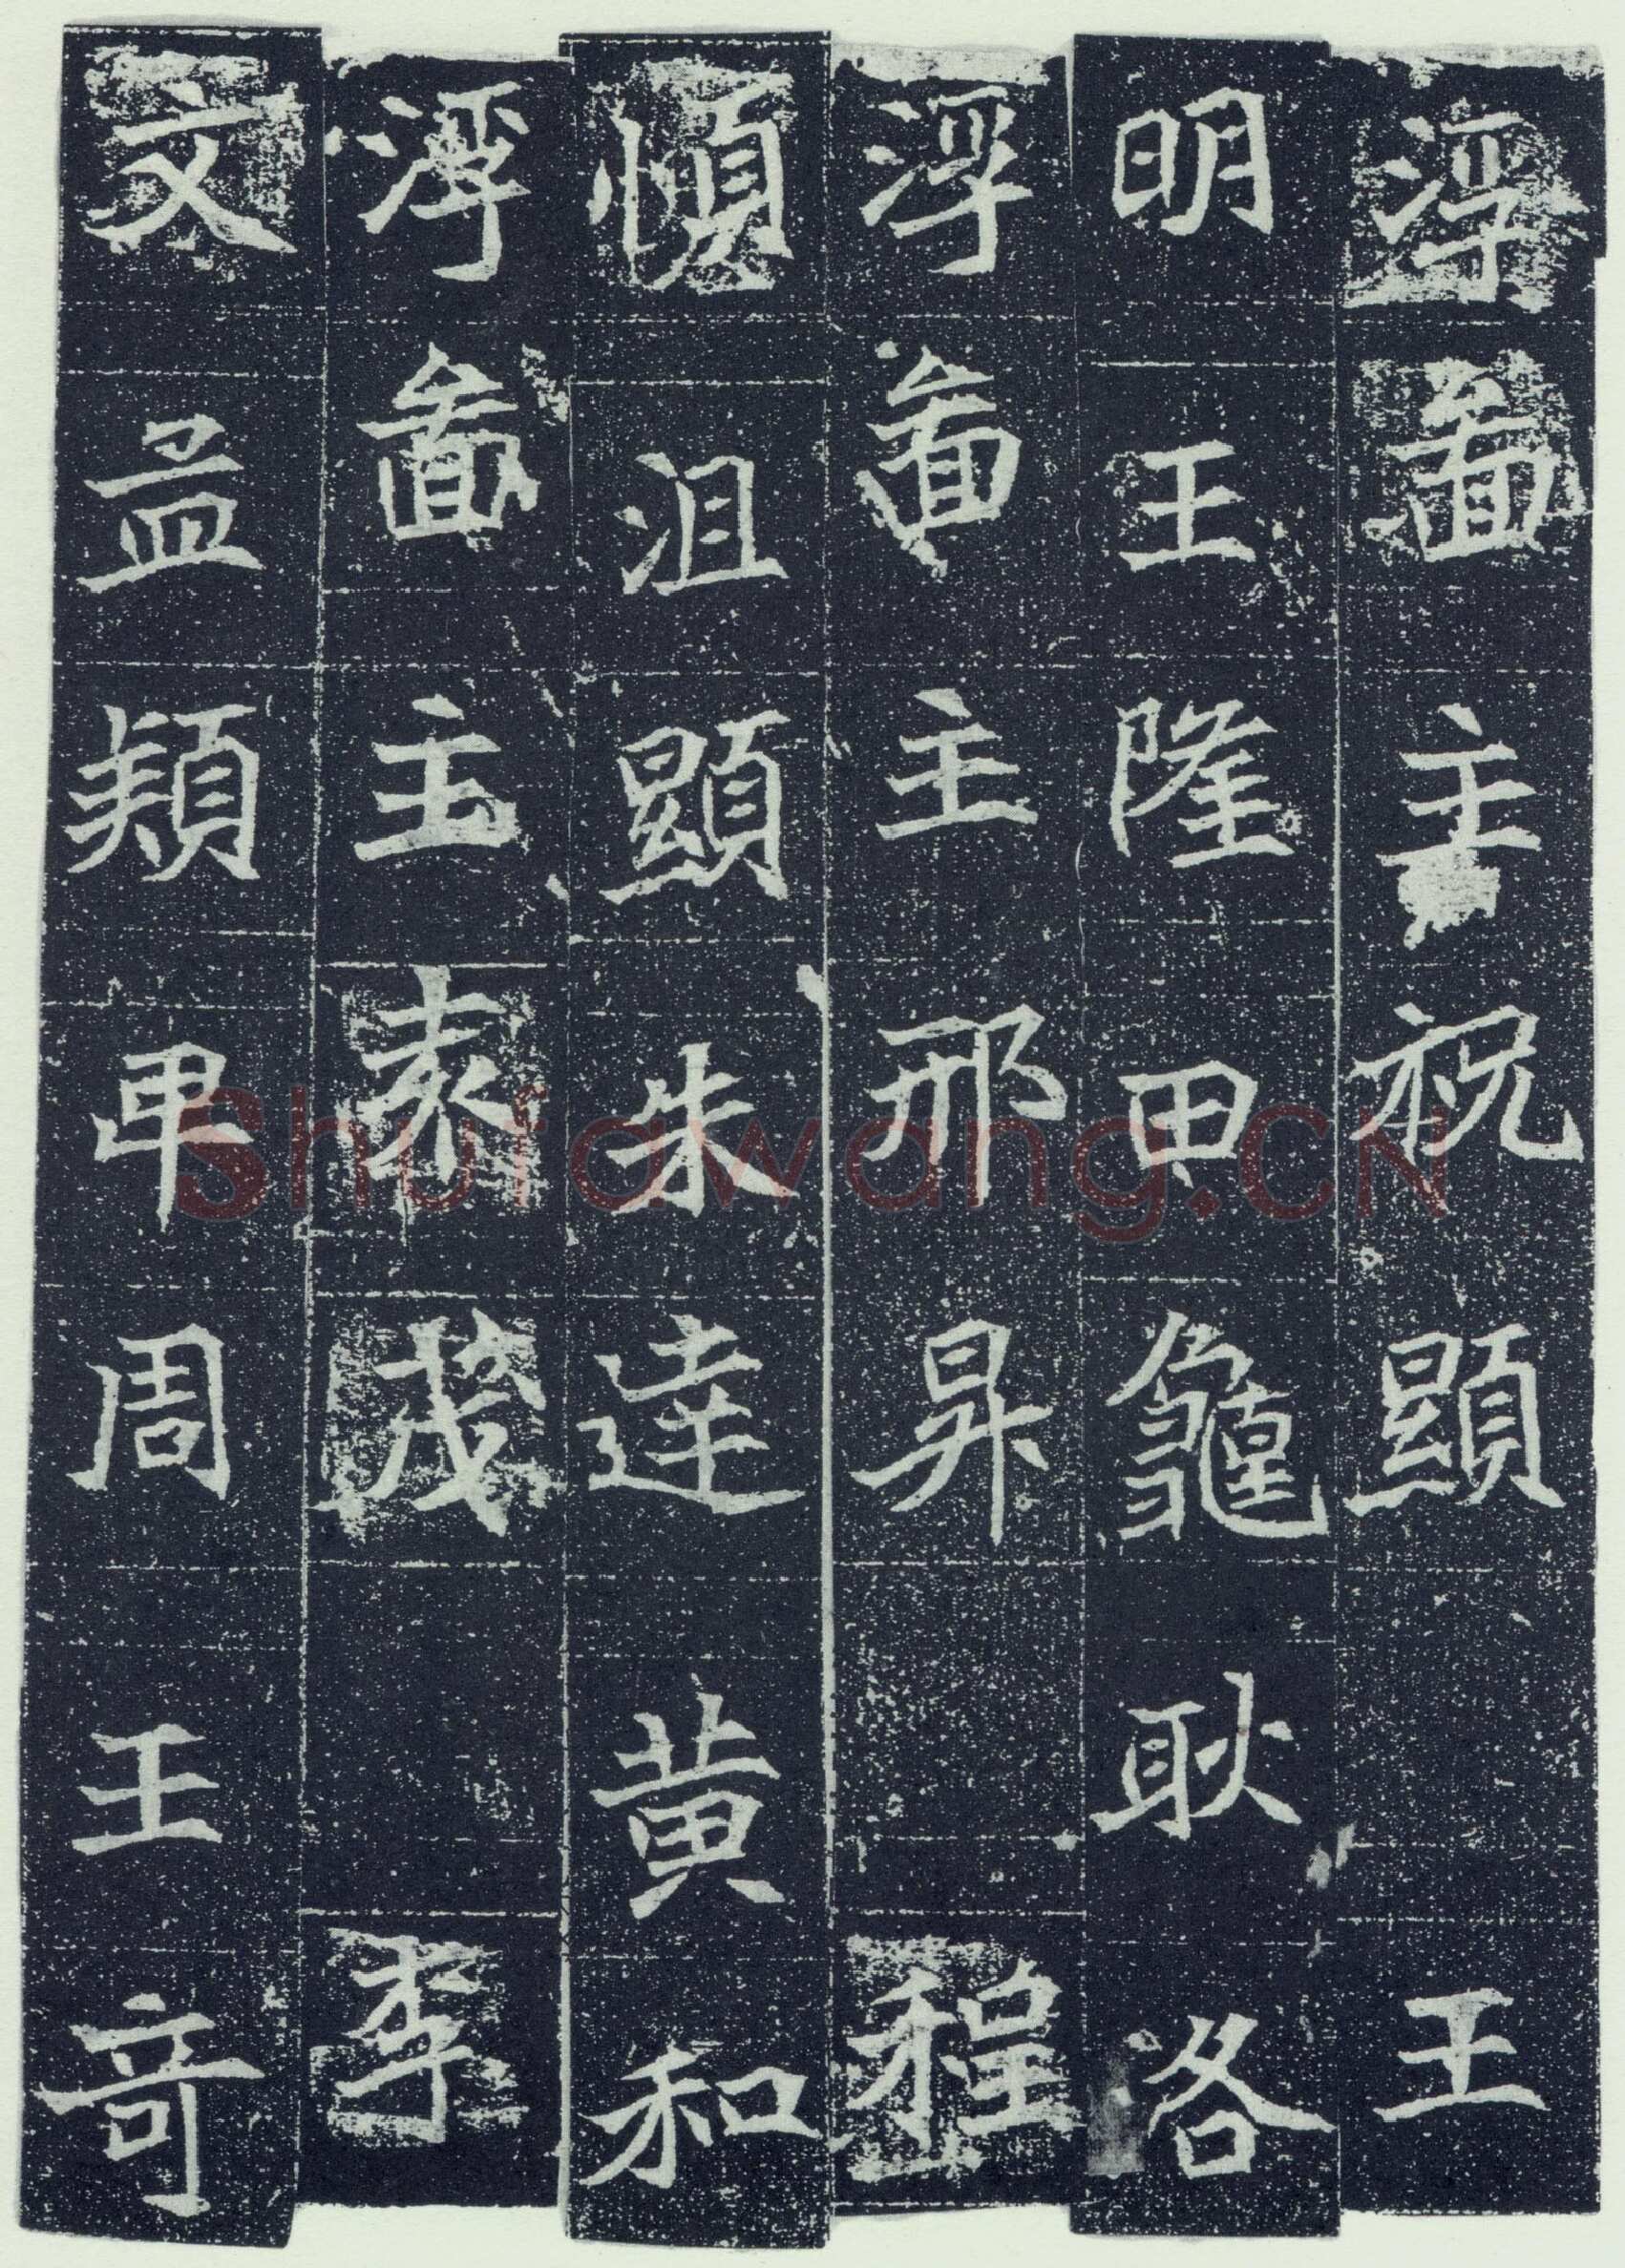 浮啚主祝顯 王
明王隆甲龜耿各
浮啚主邢昇 程
愼沮顯朱達黃和
浮啚主袁茂 李
文孟類申周王奇
Shufawang.CN